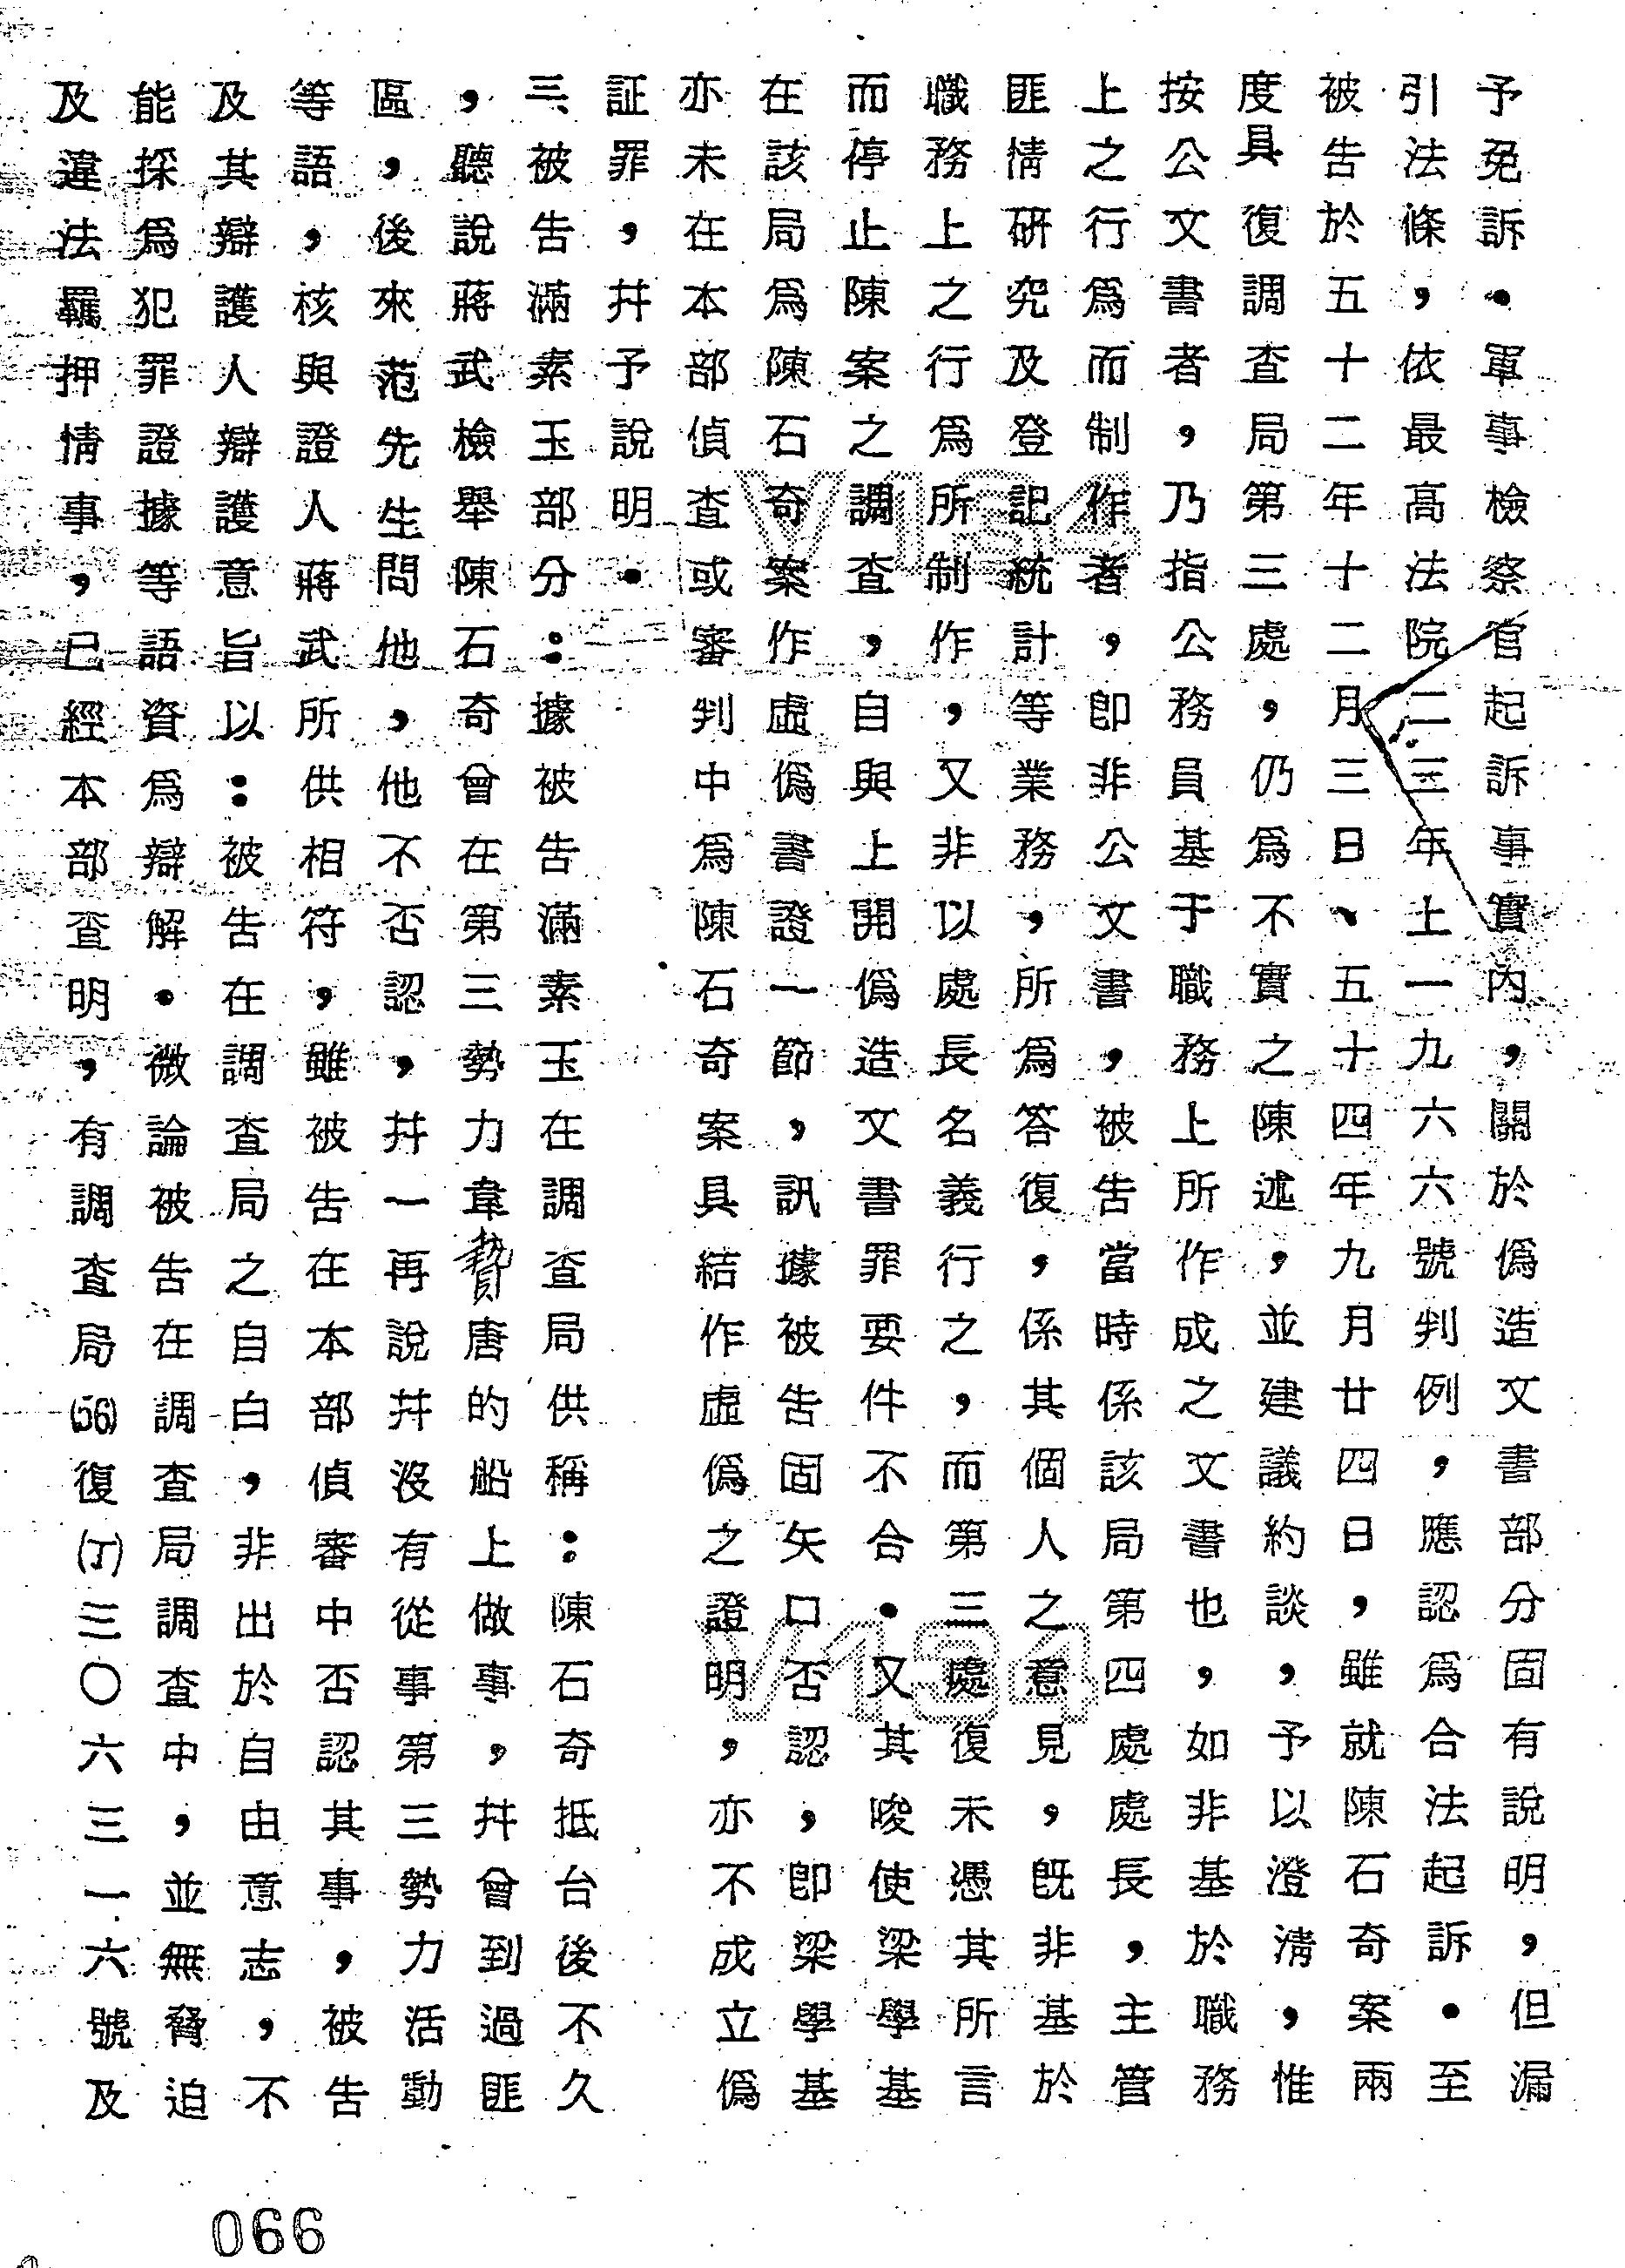 予免訴•軍事檢察官起訴事實內,關於偽造文書部分固有說明,但漏
引法條,依最高法院二三年土一九六六號判例,應認爲合法起訴•至
被告於五十二年十二月三日、五十四年九月廿四日,雖就陳石奇案兩
度具復調查局第三處,仍爲不實之陳述,並建議約談,予以澄淸,惟
按公文書者,乃指公務員基于職務上所作成之文書也,如非基於職務
上之行爲而制作者,即非公文書,被告當時係該局第四處處長,主管
匪情研究及登記統計等業務,所爲答復,係其個人之意見,既非基於
職務上之行爲所制作,又非以處長名義行之,而第三處復未憑其所言
而停止陳案之調查,自與上開偽造文書罪要件不合•又其唆使梁學基
在該局爲陳石奇案作虛偽書證一節,訊據被告固矢口否認,即梁學基
亦未在本部偵查或審判中爲陳石奇案具結作虛偽之證明,亦不成立偽
証罪,幷予說明•
三、被告滿素玉部分:據被告滿素玉在調查局供稱:陳石奇抵台後不久
,聽說蔣武檢舉陳石奇曾在第三勢力韋贄唐的船上做事,幷曾到過匪
區,後來范先生問他,他不否認,幷一再說幷沒有從事第三勢力活動
等語,核與證人蔣武所供相符,雖被告在本部偵審中否認其事,被告
及其辯護人辯護意旨以:被告在調查局之自白,非出於自由意志,不
能採爲犯罪證據等語資爲辯解•微論被告在調查局調查中,並無脅迫
及違法羈押情事,已經本部查明,有調查局(56)復(丁)三〇六三一六號及
V134
V134
066